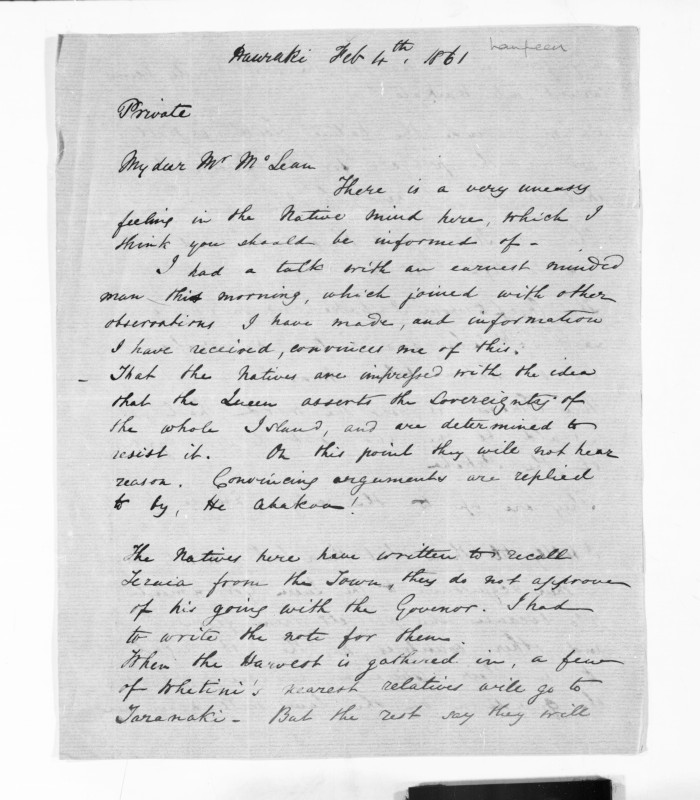 Hauraki Feb 4th. 1861
Lanfear
Private
My dear Mr McLean
There is a very uneasy
feeling in the Native mind here, which I
think you should be informed of -
I had a talk with an earnest minded
man this morning, which joined with other
observations I have made, and information
I have received, convinces me of this.
- That the Natives are impressed with the idea
that the Queen asserts the Sovereignty of
the whole Island, and are determined to
resist it. On this point they will not hear
reason. Convincing arguments are replied
to by, He ahakoa!
The Natives here have written to recall
from the Town, they do not approve
of his going with the Govenor. I had
to write the note for them.
When the Harvest is gathered in, a few
of Whetini's nearest relatives will go to
Taranaki - But the rest say they will